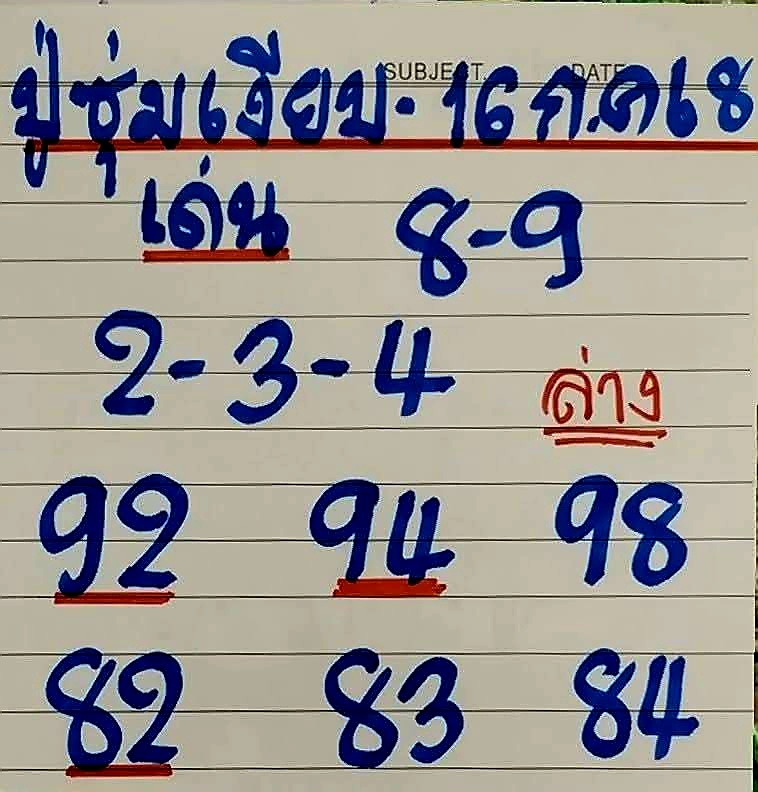 SUBJECT. DATE
ปู่ซุ่มเงียบ-16ก.ค68
เด่น 8-9
2-3-4 ล่าง
92 94 98
82 83 84